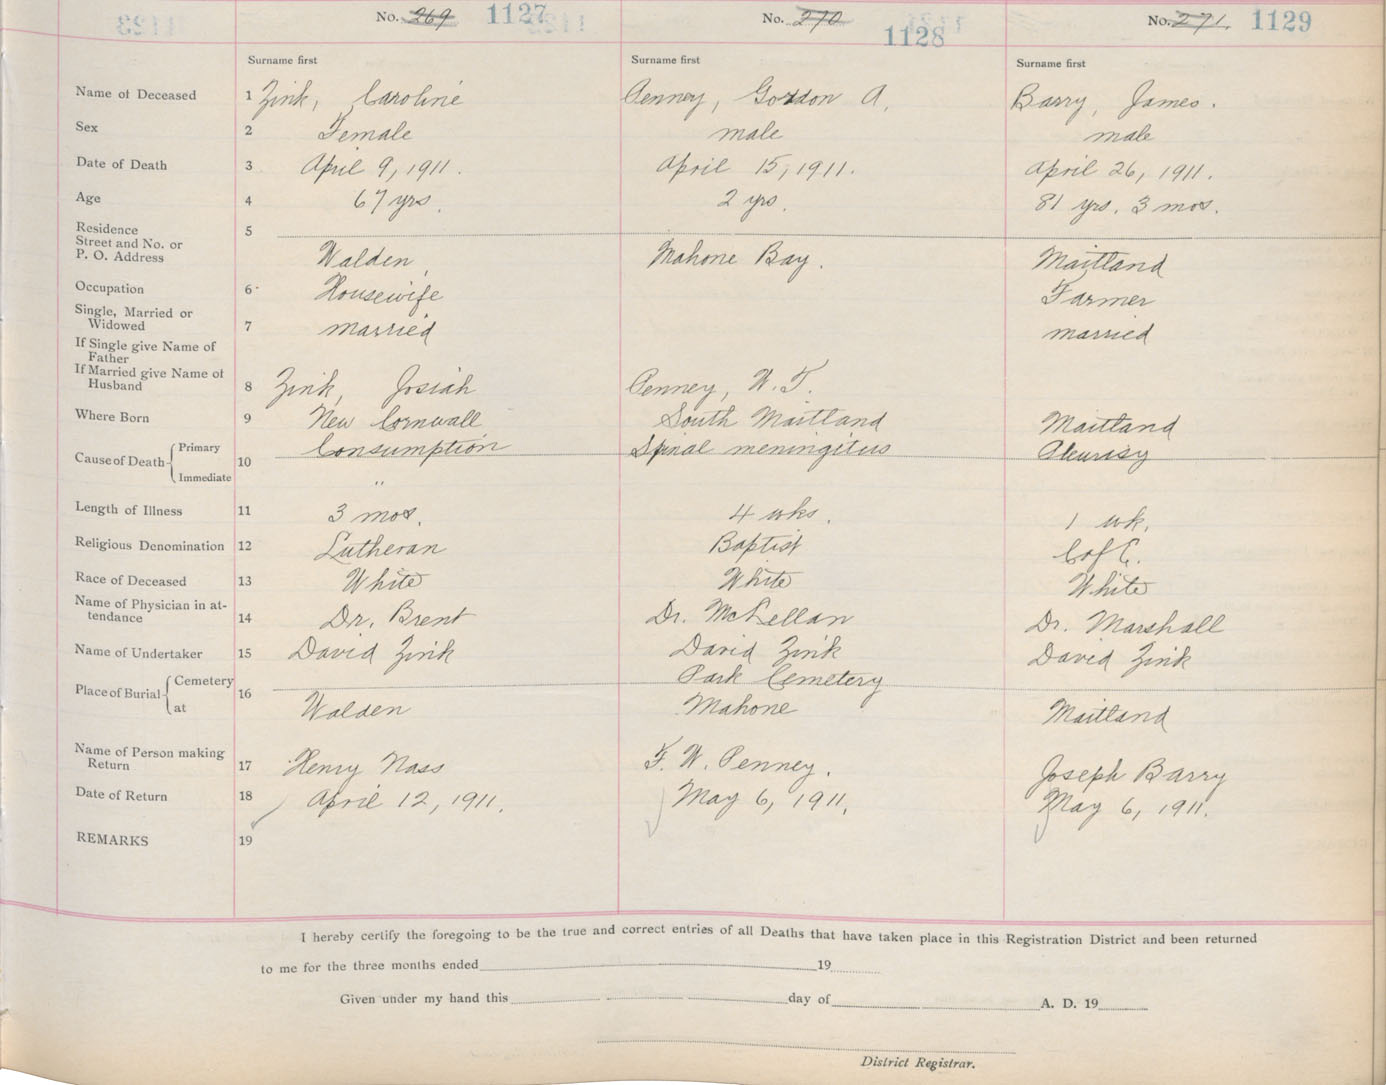 No. 269 1127 No. 270 1128 No. 271. 1129
Surname first Surname first Surname first
Name of Deceased 1 Zink, Caroline Penney, Gordon A. Barry, James.
Sex 2 Female male male
Date of Death 3 April 9, 1911. April 15, 1911. April 26, 1911.
Age 4 67 yrs. 2 yrs. 81 yrs. 3 mos.
Residence 5
Street and No. or
P. O. Address Walden, Mahone Bay. Maitland
Occupation 6 Housewife Farmer
Single, Married or
Widowed 7 married married
If Single give Name of
Father
If Married give Name of
Husband 8 Zink, Josiah Penney, W. F.
Where Born 9 New Cornwall South Maitland Maitland
Cause of Death Primary 10 Consumption Spinal meningitus Pleurisy
Immediate "
Length of Illness 11 3 mos. 4 wks. 1 wk.
Religious Denomination 12 Lutheran Baptist C of E.
Race of Deceased 13 White White White
Name of Physician in at-
tendance 14 Dr. Brent Dr. McLellan Dr. Marshall
Name of Undertaker 15 David Zink David Zink David Zink
Place of Burial Cemetery 16 Park Cemetery
at Walden Mahone Maitland
Name of Person making
Return 17 Henry Nass F. W. Penney. Joseph Barry
Date of Return 18 April 12, 1911. May 6, 1911. May 6, 1911.
REMARKS 19
I hereby certify the foregoing to be the true and correct entries of all Deaths that have taken place in this Registration District and been returned
to me for the three months ended 19
Given under my hand this day of A. D. 19
District Registrar.